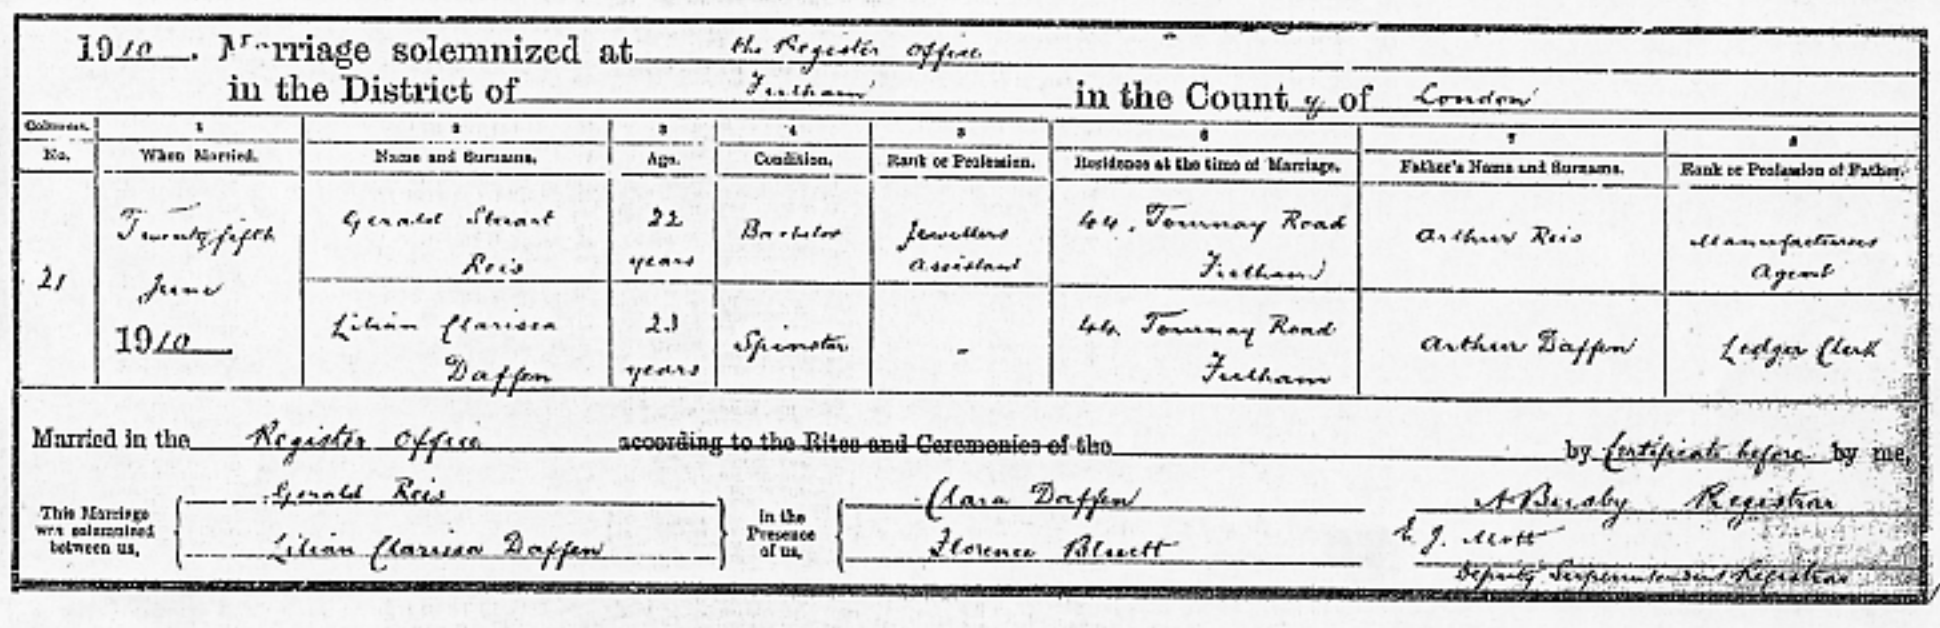 1910. Marriage solemnized at the Register Office
in the District of Fulham in the County of London
Columns. 1 2 3 4 5 6 7 8
No. When Married. Name and Surname. Age. Condition. Rank or Profession. Residence at the time of Marriage. Father's Name and Surname. Rank or Profession of Father.
21
Twenty fifth
June
1910
Gerald Stuart
Reis
22
years
Bachelor
Jewellers
Assistant
44, Tournay Road
Fulham
Arthur Reis
Manufacturers
Agent
Lilian Clarissa
Daffen
23
years
Spinster
-
44, Tournay Road
Fulham
Arthur Daffen
Ledger Clerk
Married in the Register Office according to the Rites and Ceremonies of the by Certificate before by me,
This Marriage
was solemnized
between us,
Gerald Reis
Lilian Clarissa Daffen
in the
Presence
of us,
Clara Daffen
Florence Bluett
A Busby Registrar
E. J. Mott
Deputy Superintendent Registrar